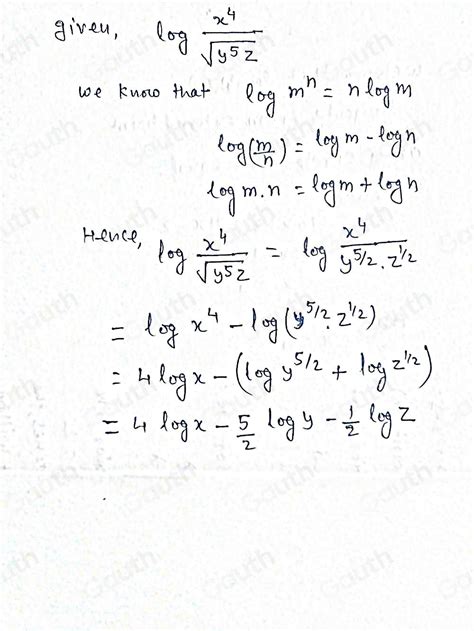 given, log x⁴/√(y⁵z)
we know that log mⁿ = n log m
log(m/n) = log m - log n
log m.n = log m + log n
Hence, log x⁴/√(y⁵z) = log x⁴/(y^5/2 . z^1/2)
= log x⁴ - log(y^5/2 . z^1/2)
= 4 log x - (log y^5/2 + log z^1/2)
= 4 log x - 5/2 log y - 1/2 log z